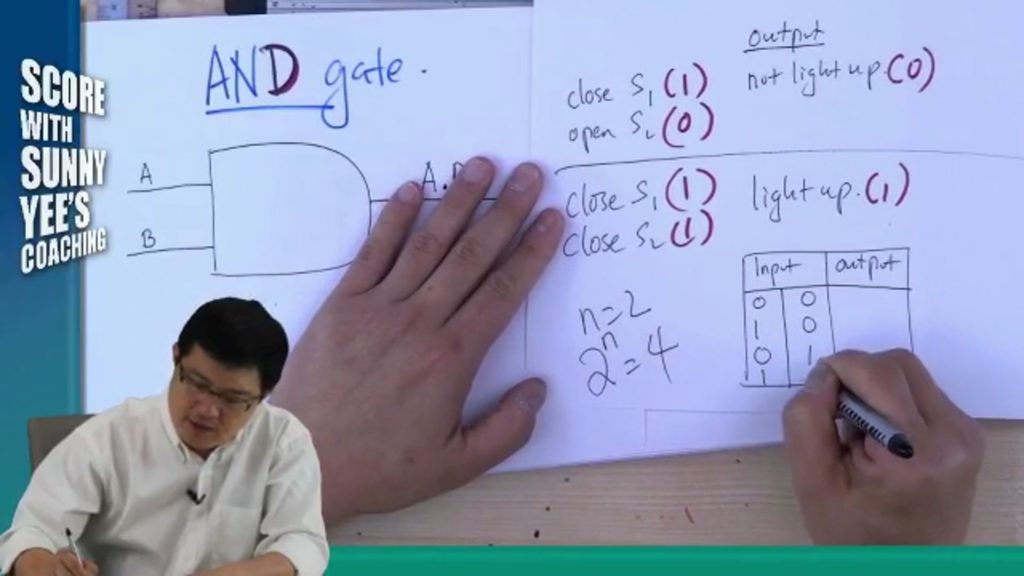 SCORE
WITH
SUNNY
YEE'S
COACHING
AND gate.
A
B
output
close S₁ (1)
not light up. (0)
open S₂ (0)
close S₁ (1)
light up. (1)
close S₂ (1)
n=2
2ⁿ=4
Input output
0 0
1 0
0 1
1